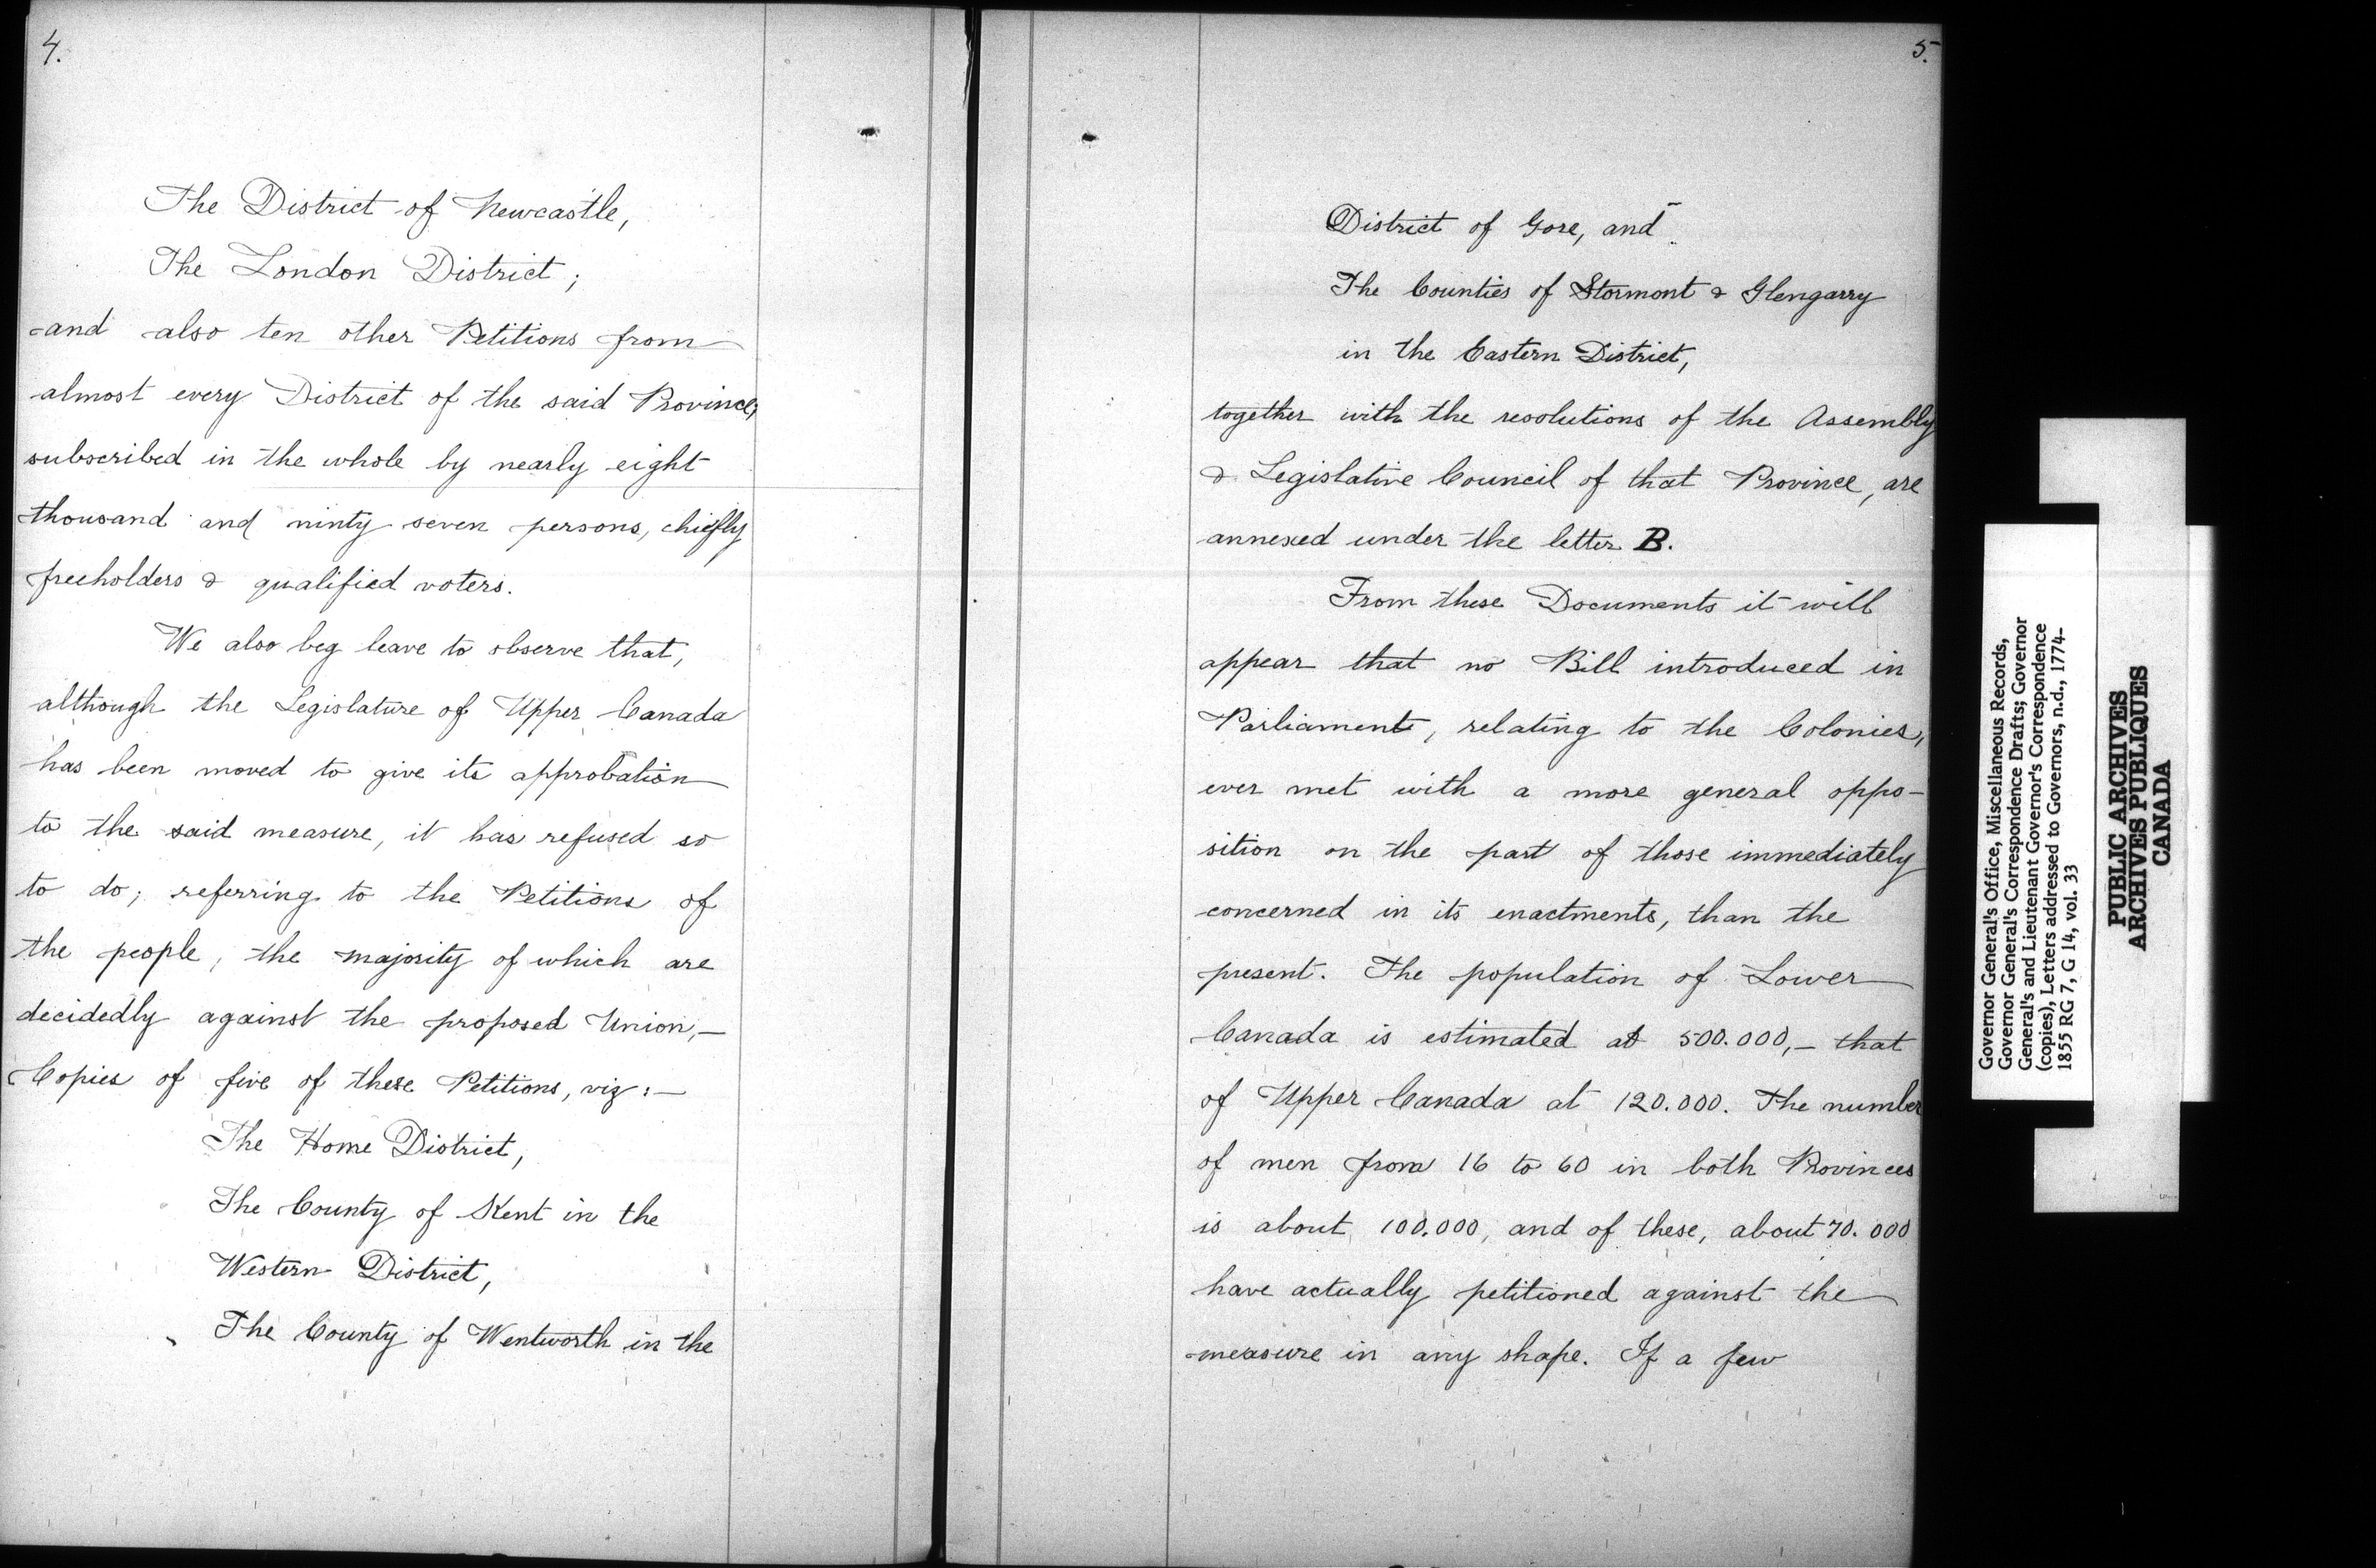 4.
The District of Newcastle,
The London District;
and also ten other Petitions from
almost every District of the said Province,
subscribed in the whole by nearly eight
thousand and ninty seven persons, chiefly
freeholders & qualified voters.
We also beg leave to observe that,
although the Legislature of Upper Canada
has been moved to give its approbation
to the said measure, it has refused so
to do; referring to the Petitions of
the people, the majority of which are
decidedly against the proposed Union,—
Copies of five of these Petitions, viz:—
The Home District,
The County of Kent in the
Western District,
The County of Wentworth in the
5.
District of Gore, and
The Counties of Stormont & Glengarry
in the Eastern District,
together with the resolutions of the Assembly
& Legislative Council of that Province, are
annexed under the letter B.
From these Documents it will
appear that no Bill introduced in
Parliament, relating to the Colonies,
ever met with a more general oppo-
sition on the part of those immediately
concerned in its enactments, than the
present. The population of Lower
Canada is estimated at 500.000,— that
of Upper Canada at 120.000. The number
of men from 16 to 60 in both Provinces
is about 100.000, and of these, about 70.000
have actually petitioned against the
measure in any shape. If a few
Governor General's Office, Miscellaneous Records,
Governor General's Correspondence Drafts; Governor
General's and Lieutenant Governor's Correspondence
(copies), Letters addressed to Governors, n.d., 1774-
1855 RG 7, G 14, vol. 33
PUBLIC ARCHIVES
ARCHIVES PUBLIQUES
CANADA